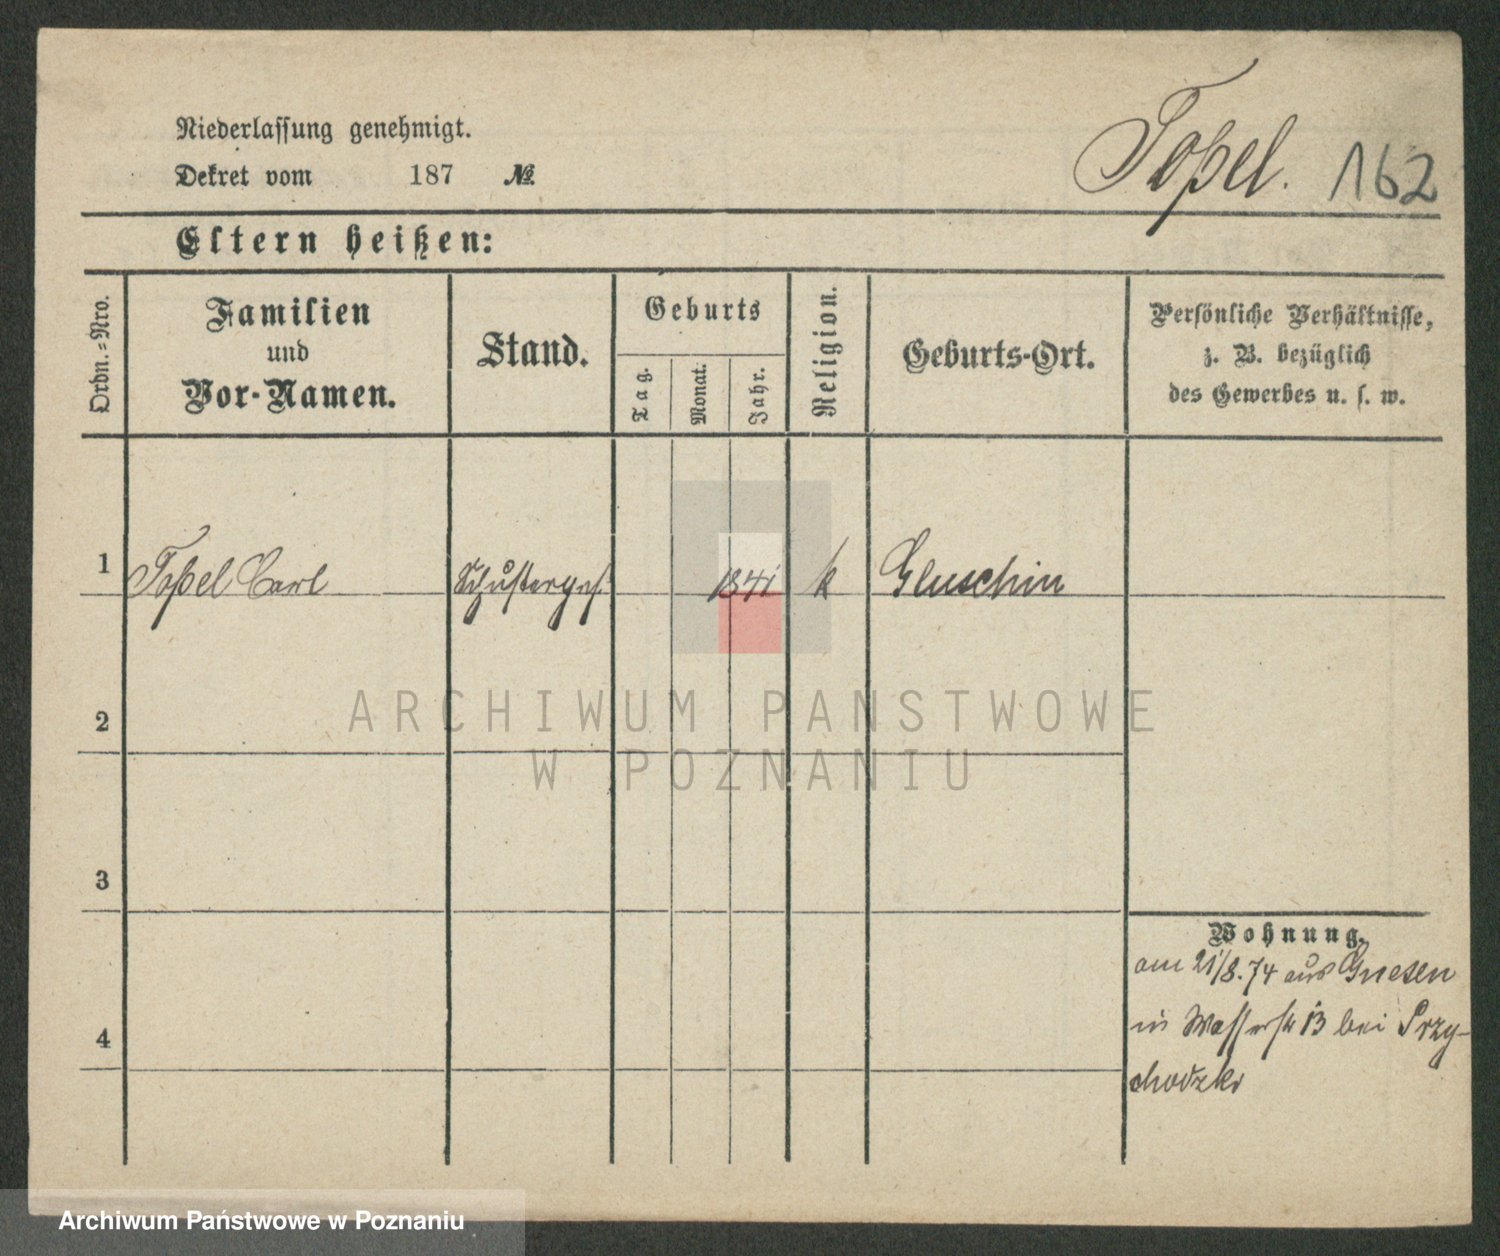 Niederlassung genehmigt.
Dekret vom 187 №
Topel. 162
Eltern heißen:
Ordn.-Nro.
Familien
und
Vor-Namen.
Stand.
Geburts
Tag.
Monat.
Jahr.
Religion.
Geburts-Ort.
Persönliche Verhältnisse,
z. B. bezüglich
des Gewerbes u. s. w.
1 Topel Carl Schusterges. 1841 k Gluschin
2
ARCHIWUM PAŃSTWOWE
W POZNANIU
3
Wohnung.
am 21/8.74 aus Gnesen
in Wasserstr 13 bei Przy-
chodzki
4
Archiwum Państwowe w Poznaniu